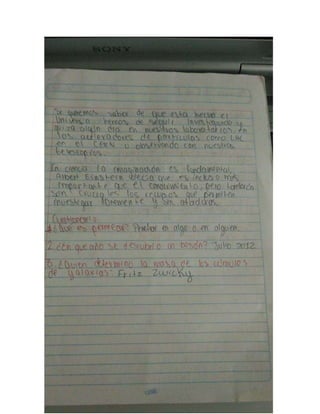 SONY
Si queremos saber de que esta hecho el
Universo hemos de seguir investigando y
quiza algún día en nuestros laboratorios, en
los aceleradores de particulas como LHC
en el CERN u observando con nuestros
telescopios.
En ciencia la imaginación es fundamental,
Albert Einstein decia que es incluso más
importante que el conocimiento, pero tambien
son cruciales los equipos que permitan
investigar libremente y sin ataduras.
Cuestionario
1 ¿Que es pernear? Penetrar en algo o en alguien.
2 ¿En que año se descubrio un boson? Julio 2012
3 ¿Quien determino la masa de los cúmulos
de galaxias? Fritz Zwicky